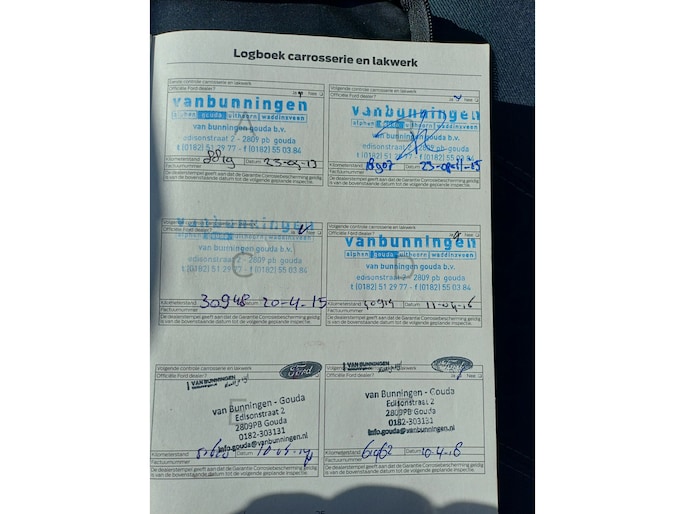 Logboek carrosserie en lakwerk
Eerste controle carrosserie en lakwerk
Officiële Ford dealer? Ja Nee
vanbunningen
alphen gouda uithoorn waddinxveen
A
van bunningen gouda b.v.
edisonstraat 2 - 2809 pb gouda
t (0182) 51 29 77 - f (0182) 55 03 84
Kilometerstand Datum
Factuurnummer
De dealerstempel geeft aan dat de Garantie Corrosiebescherming geldig
is van de bovenstaande datum tot de volgende geplande inspectie.
Volgende controle carrosserie en lakwerk
Officiële Ford dealer? Ja Nee
vanbunningen
alphen gouda uithoorn waddinxveen
van bunningen gouda b.v.
edisonstraat 2 - 2809 pb gouda
t (0182) 51 29 77 - f (0182) 55 03 84
Kilometerstand Datum
Factuurnummer
De dealerstempel geeft aan dat de Garantie Corrosiebescherming geldig
is van de bovenstaande datum tot de volgende geplande inspectie.
vanbunningen
alphen gouda uithoorn waddinxveen
C
van bunningen gouda b.v.
edisonstraat 2 - 2809 pb gouda
t (0182) 51 29 77 - f (0182) 55 03 84
Kilometerstand 30948 20-4-15
Factuurnummer
De dealerstempel geeft aan dat de Garantie Corrosiebescherming geldig
is van de bovenstaande datum tot de volgende geplande inspectie.
Volgende controle carrosserie en lakwerk
Officiële Ford dealer? Ja Nee
vanbunningen
alphen gouda uithoorn waddinxveen
D
van bunningen gouda b.v.
edisonstraat 2 - 2809 pb gouda
t (0182) 51 29 77 - f (0182) 55 03 84
Kilometerstand Datum 11-04-16
Factuurnummer
De dealerstempel geeft aan dat de Garantie Corrosiebescherming geldig
is van de bovenstaande datum tot de volgende geplande inspectie.
Volgende controle carrosserie en lakwerk
Officiële Ford dealer?
Ford
VAN BUNNINGEN
E
van Bunningen - Gouda
Edisonstraat 2
2809PB Gouda
0182-303131
info.gouda@vanbunningen.nl
Kilometerstand Datum
Factuurnummer
De dealerstempel geeft aan dat de Garantie Corrosiebescherming geldig
is van de bovenstaande datum tot de volgende geplande inspectie.
Volgende controle carrosserie en lakwerk
Officiële Ford dealer? Ja Nee
VAN BUNNINGEN
Ford
van Bunningen - Gouda
Edisonstraat 2
2809PB Gouda
0182-303131
info.gouda@vanbunningen.nl
Kilometerstand Datum 10-4-18
Factuurnummer
De dealerstempel geeft aan dat de Garantie Corrosiebescherming geldig
is van de bovenstaande datum tot de volgende geplande inspectie.